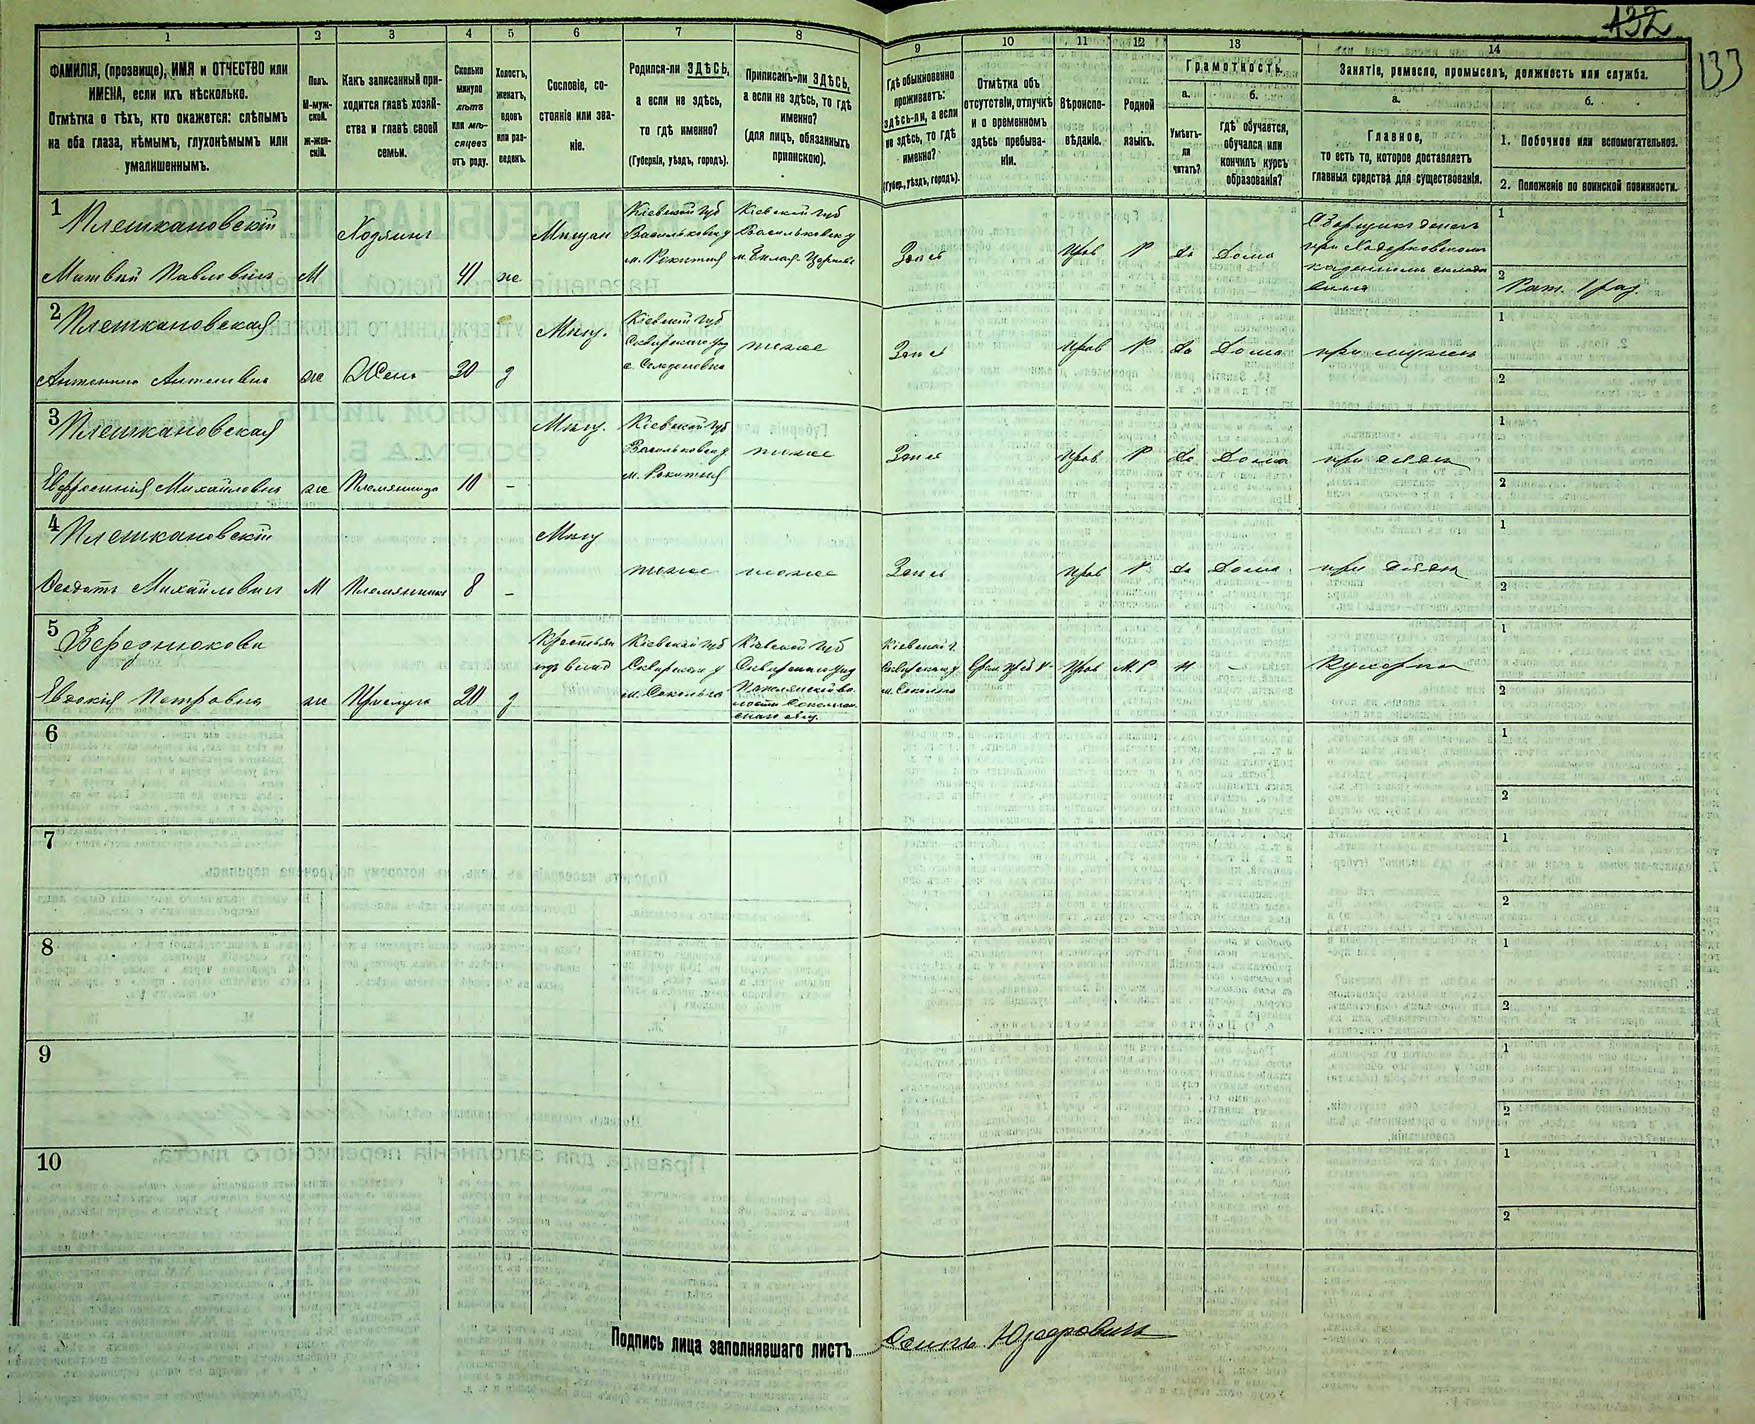 132
133
1 2 3 4 5 6 7 8 9 10 11 12 13 14
ФАМИЛІЯ, (прозвище), ИМЯ и ОТЧЕСТВО или
ИМЕНА, если ихъ нѣсколько.
Отмѣтка о тѣхъ, кто окажется: слѣпымъ
на оба глаза, нѣмымъ, глухонѣмымъ или
умалишеннымъ.
Полъ.
М-муж-
ской.
ж-жен-
скій.
Какъ записанный при-
ходится главѣ хозяй-
ства и главѣ своей
семьи.
Сколько
минуло
лѣтъ
или мѣ-
сяцевъ
отъ роду.
Холостъ,
женатъ,
вдовъ
или раз-
веденъ.
Сословіе, со-
стояніе или зва-
ніе.
Родился-ли ЗДѢСЬ,
а если не здѣсь,
то гдѣ именно?
(Губернія, уѣздъ, городъ).
Приписанъ-ли ЗДѢСЬ,
а если не здѣсь, то гдѣ
именно?
(для лицъ, обязанныхъ
припискою).
Гдѣ обыкновенно
проживаетъ:
здѣсь-ли, а если
не здѣсь, то гдѣ
именно?
(Губер., уѣздъ, городъ).
Отмѣтка объ
отсутствіи, отлучкѣ
и о временномъ
здѣсь пребыва-
ніи.
Вѣроиспо-
вѣданіе.
Родной
языкъ.
Грамотность.
а.
Умѣетъ-
ли
читать?
б.
гдѣ обучается,
обучался или
кончилъ курсъ
образованія?
Занятіе, ремесло, промыселъ, должность или служба.
а.
Главное,
то есть то, которое доставляетъ
главныя средства для существованія.
б.
1. Побочное или вспомогательное.
2. Положеніе по воинской повинности.
1
Плешкановскій
Матвѣй Павловичъ М Хозяинъ 41 ж Мѣщан
Кіевской губ
Васильковск у
м. Рокитня
Кіевской губ
Васильковск у
м. Бѣлая Церковь
Здѣсь Прав Р да Дома
Сборщикъ денегъ
при Ходорковскомъ
казенномъ складѣ
вина
1
2 Рат. 1 раз.
2
Плешкановская
Антонина Антоновна ж Жена 30 з Мѣщ.
Кіевской губ
Сквирскаго уѣзд
тоже Здѣсь Прав Р да Дома при мужѣ
1
2
3
Плешкановская
Евфросинія Михайловна ж Племянница 10 - Мѣщ.
Кіевской губ
Васильковск у
м. Рокитня
тоже Здѣсь Прав Р да Дома при дядѣ
1
2
4
Плешкановскій
Феодотъ Михайловичъ М Племянникъ 8 - Мѣщ
тоже тоже Здѣсь Прав Р да Дома при дядѣ
1
2
5
Березнюкова
Евдокія Петровна ж Прислуга 20 з
Крестьян
изъ влад
Кіевской губ
Сквирскаго у
Кіевской губ
Сквирскаго уѣзд
Кіевской г
Сквирскаго у
Прав М.Р н - Кухарка
1
2
6 1 2
7 1 2
8 1 2
9 1 2
10 1 2
Подпись лица заполнявшаго листъ Осипъ